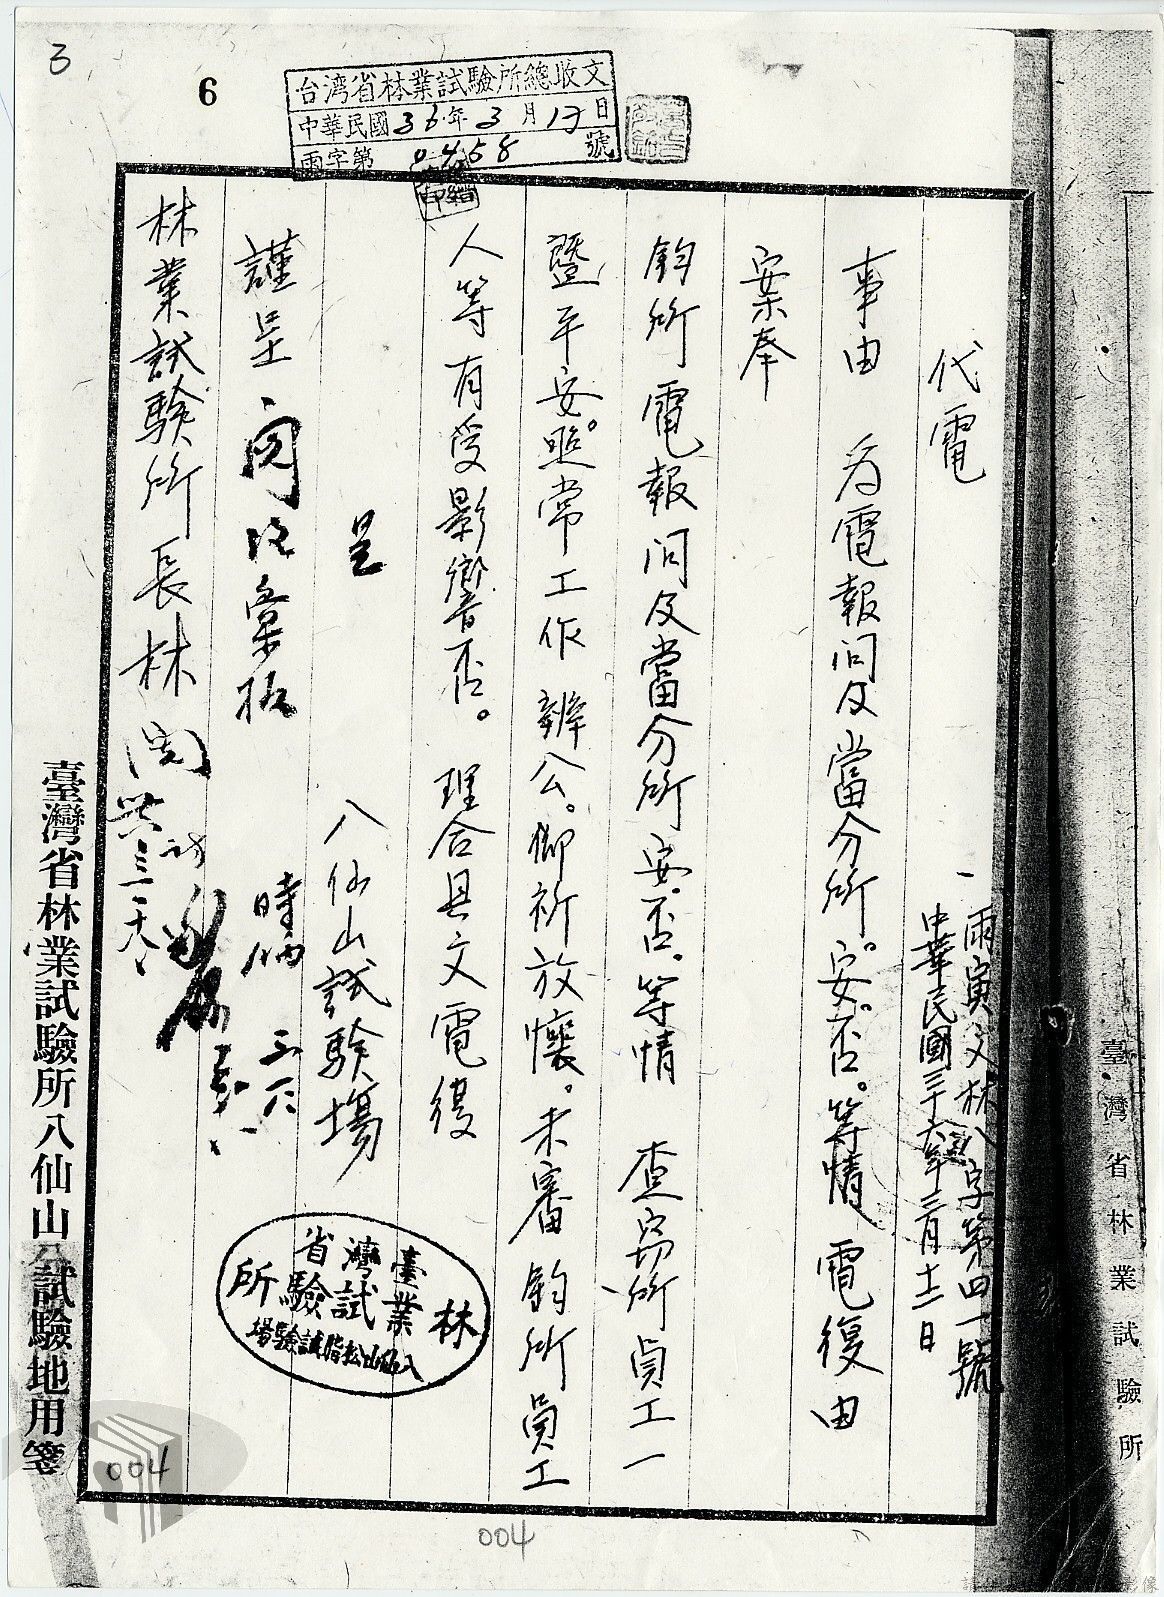 3
6
台湾省林業試驗所總收文
中華民國36年3月17日
雨字第0458號
代電
一雨寅文林八字第四一號
中華民國三十六年三月十二日
事由 为電報问及當分所。安。否。等情 電復由
案奉
鈞所電報问及當分所安。否。等情 查窃所員工一
暨平安。照常工作 辦公。仰祈放懷。未審鈞所員工
人等有受影響否。 理合具文電復
呈 八仙山試験場
謹呈
林業試験所長林
臺灣省林業試驗所
八仙山松脂試驗場
臺灣省林業試驗所八仙山試驗地用箋
臺灣省林業試驗所
004
004